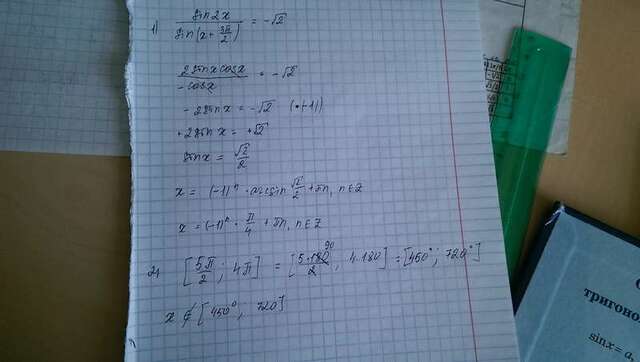 1) sin2x / sin(x + 3π/2) = -√2
2sinxcosx / -cosx = -√2
- 2sinx = -√2 (·(-1))
+2sinx = +√2
sinx = √2/2
x = (-1)ⁿ · arcsin √2/2 + πn, n∈Z
x = (-1)ⁿ · π/4 + πn, n∈Z
2) [5π/2 ; 4π] = [5·180/2 90 ; 4·180] = [450° ; 720°]
x ∉ [450° ; 720]
тригоно
sinx= a,